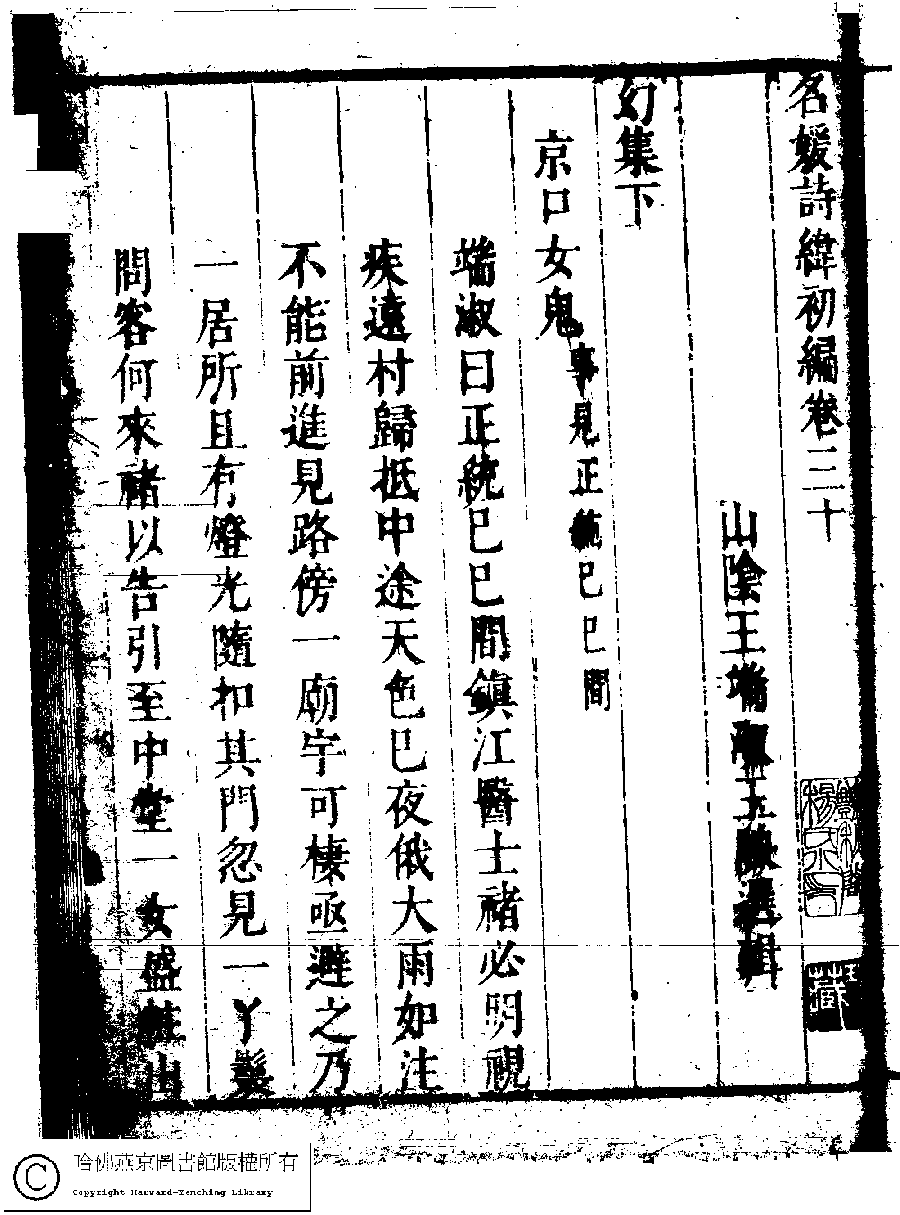 名媛詩緯初編卷三十
山陰王端淑玉映選輯
幻集下
京口女鬼事見正統己巳間
端淑曰正統己巳間鎮江醫士禇必明視
疾遠村歸抵中途天色已夜俄大雨如注
不能前進見路傍一廟宇可棲亟避之乃
一居所且有燈光隨扣其門忽見一丫鬟
問客何來禇以告引至中堂一女盛粧出
哈佛燕京圖書館版權所有
Copyright Harvard-Yenching Library